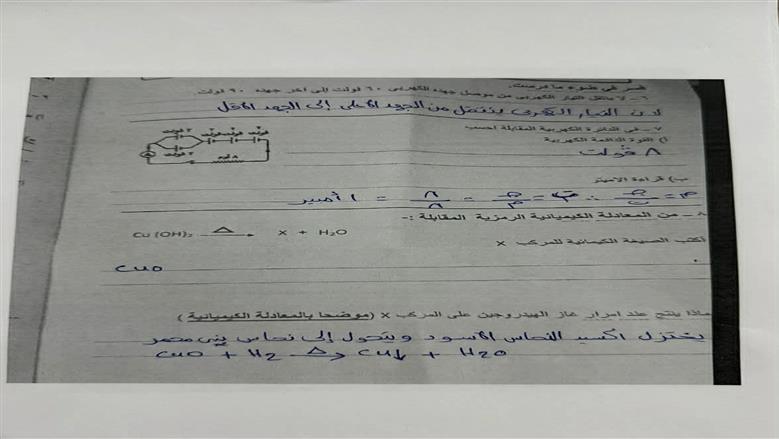 فسر في ضوء ما درست:
٦- لا ينتقل التيار الكهربي من موصل جهده الكهربي ٦٠ فولت إلى آخر جهده ٩٠ فولت.
لان التيار الكهربى ينتقل من الجهد الأعلى إلى الجهد الأقل
٧- في الدائرة الكهربية المقابلة احسب
أ) القوة الدافعة الكهربية
٨ فولت
ب) قراءة الأميتر
= ١ أمبير
٨- من المعادلة الكيميائية الرمزية المقابلة :-
Cu (OH)₂ Δ→ X + H₂O
أكتب الصيغة الكيميائية للمركب X
CuO
ماذا ينتج عند امرار غاز الهيدروجين على المركب X (موضحا بالمعادلة الكيميائية)
يختزل اكسيد النحاس الأسود ويتحول إلى نحاس بنى محمر
CuO + H2 Δ→ Cu↓ + H2O